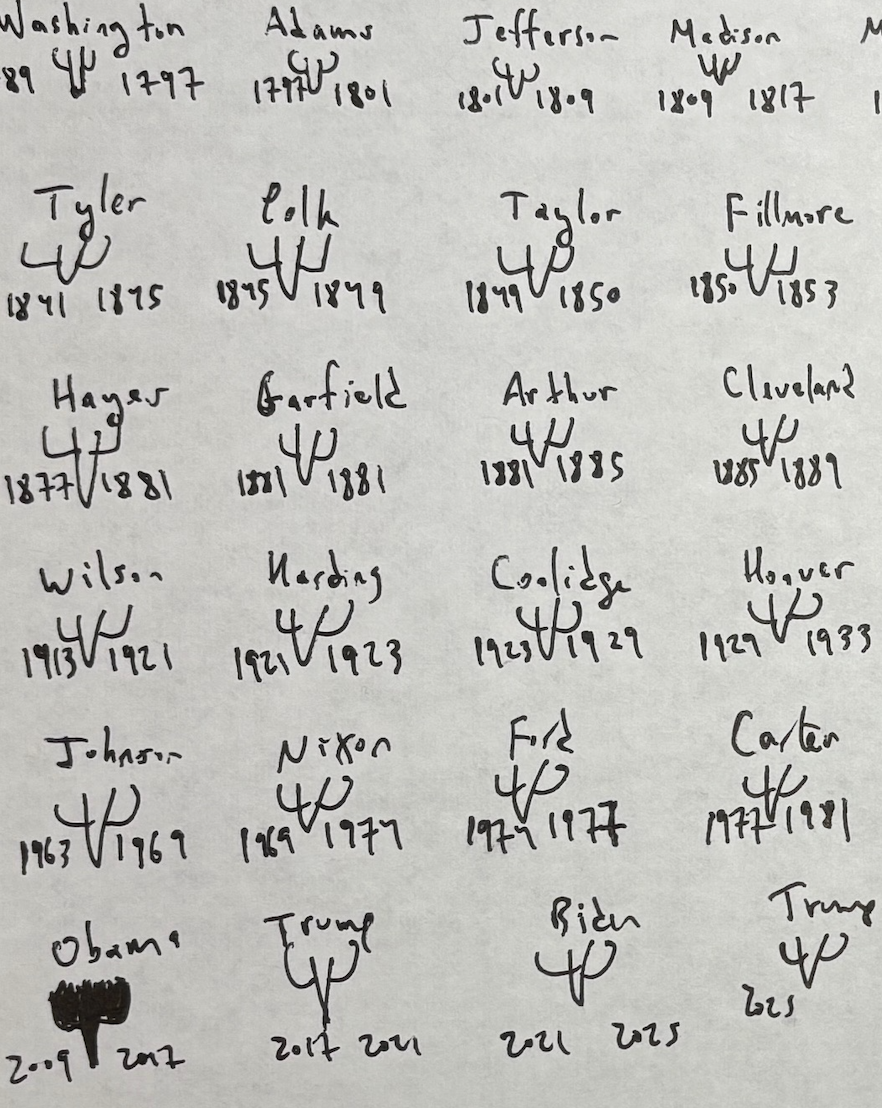 Washington Adams Jefferson Madison M
89 1797 1797 1801 1801 1809 1809 1817 1
Tyler Polk Taylor Fillmore
1841 1845 1845 1849 1849 1850 1850 1853
Hayes Garfield Arthur Cleveland
1877 1881 1881 1881 1881 1885 1885 1889
Wilson Harding Coolidge Hoover
1913 1921 1921 1923 1923 1929 1929 1933
Johnson Nixon Ford Carter
1963 1969 1969 1974 1974 1977 1977 1981
Obama Trump Biden Trump
2009 2017 2017 2021 2021 2025 2025